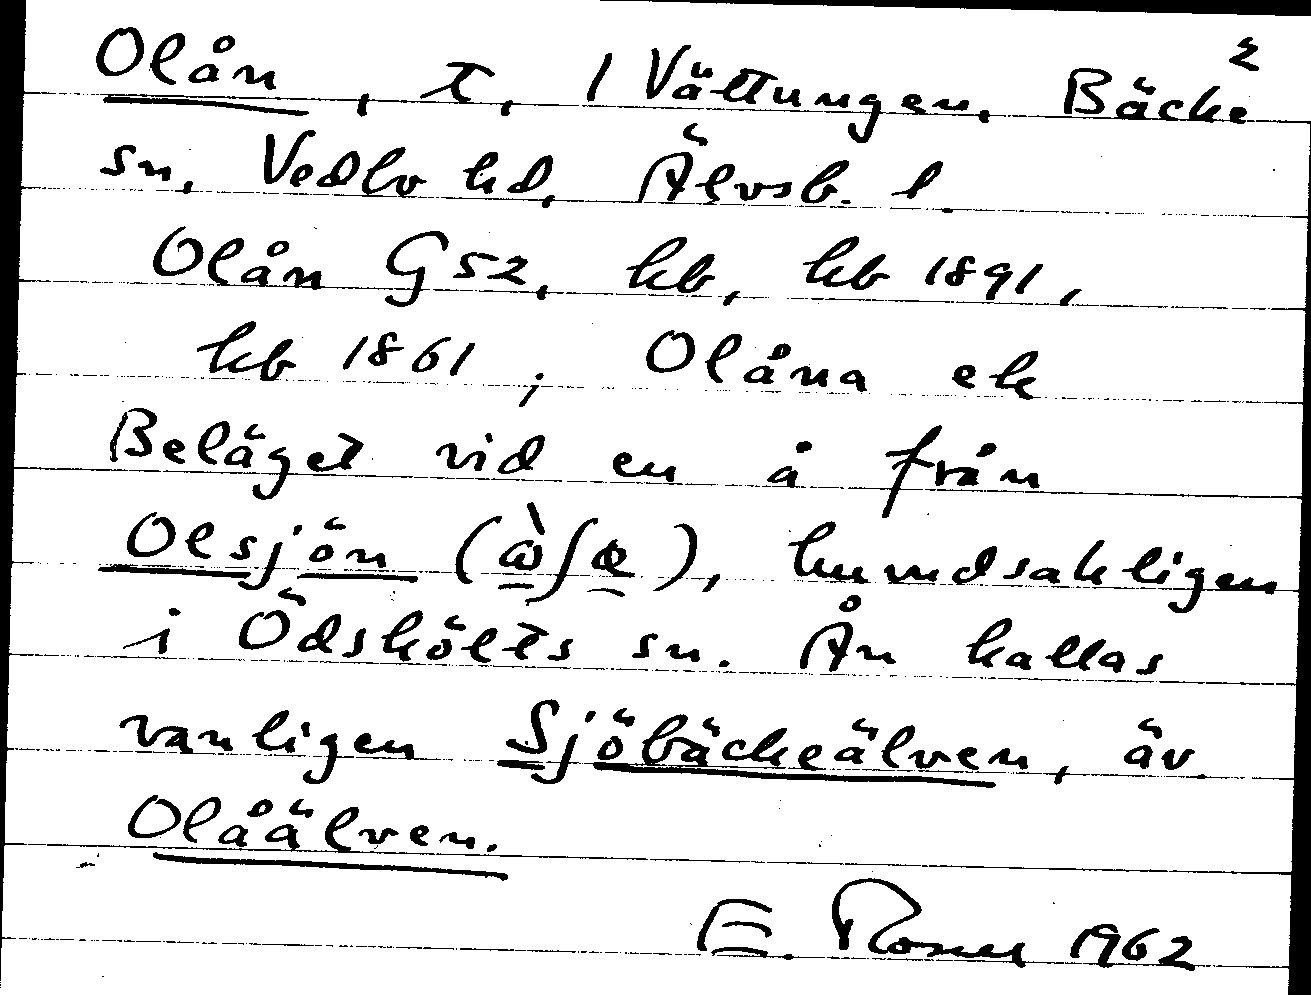 2
Olån, t, 1 Vättungen, Bäcke
sn, Vedbo hd, Älvsb. l.
Olån G52, kb, kb 1891,
kb 1861; Olåna ek
Beläget vid en å från
Olsjön, huvudsakligen
i Ödskölts sn. Ån kallas
vanligen Sjöbäckeälven, äv.
Olåälven.
E. 1962